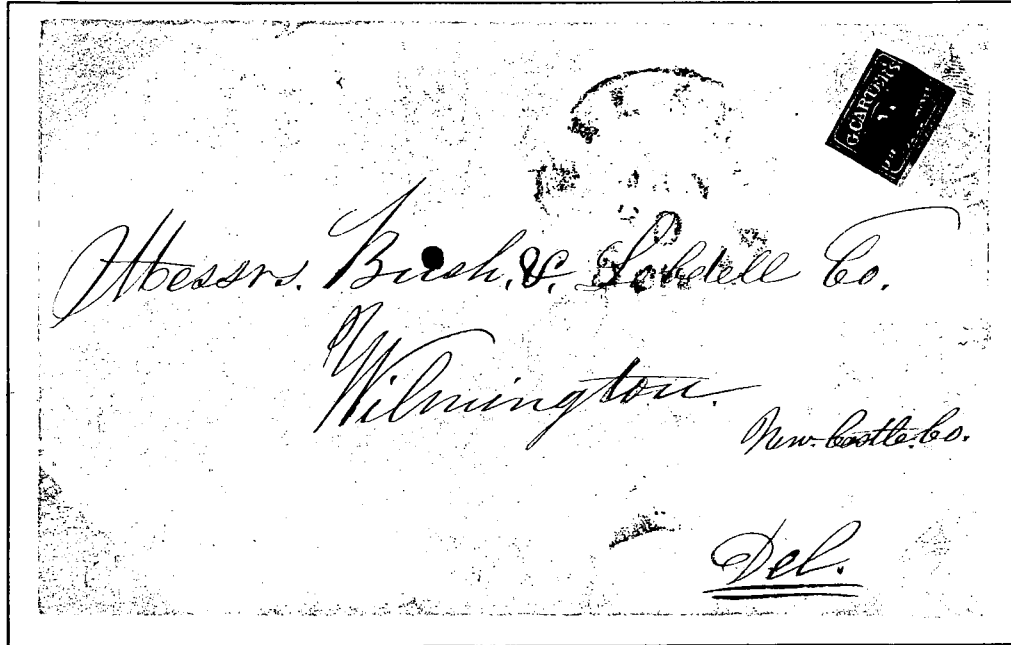 G. CARTER'S
Messrs. Bush. &. Lobdell Co.
Wilmington.
New-Castle. Co.
Del.